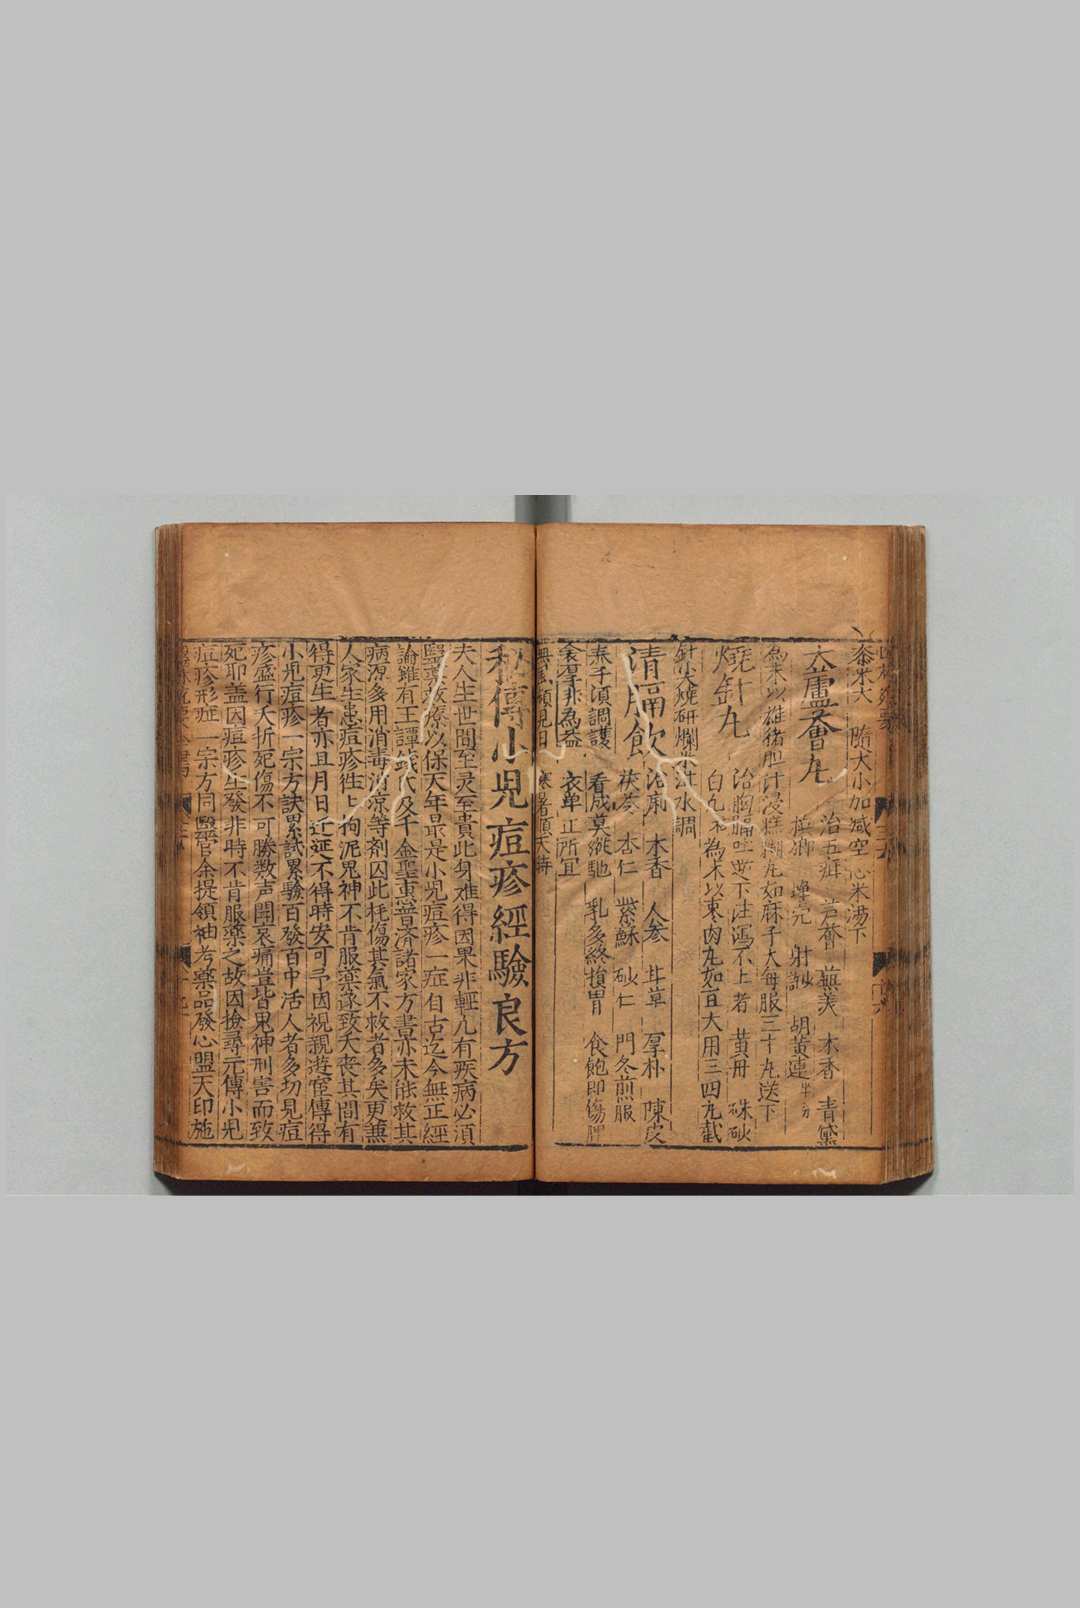 黍米大 隨大小加減空心米湯下
大蘆薈丸 治五疳 芦薈 蕪荑 木香 青黛
檳榔 蟬壳 射 胡黃連半分
為末以雄猪胆汁浸糕糊丸如麻子大每服三十丸送下
燒針丸 治胸膈吐逆下注瀉不止者 黃丹 硃砂
白九 為末以棗肉丸如豆大用三四丸戳
針尖燒研爛 水調
清膈飲 治 木香 人參 甘草 厚朴 陳皮
茯苓 杏仁 紫蘇 砂仁 門冬煎服
奉千須調護 看成莫縱馳 乳多終損胃 食飽即傷脾
衾厚非為益 衣单正所宜
無風頻見日 寒暑順天時
秘傳小児痘疹經驗良方
夫人生世間至灵至貴此身难得因果非輕凡有疾病必須
醫療以保天年最是小児痘疹一症自古迄今無正經
論雖有王譚錢代及千金聖惠普济諸家方書亦未能救其
病源多用消毒清凉等剤因此耗傷其氣不救者多矣更兼
人家生患痘疹徃上拘泥鬼神不肯服藥遂致夭喪其間有
得更生者亦且月日迁延不得時安可予因視親遊宦傳得
小児痘疹一宗方訣累試累驗百發百中活人者多切見痘
疹盛行夭折死傷不可勝数声聞哀痛豈皆鬼神刑害而致
死耶盖因痘疹生發非時不肯服藥之故因撿尋元傳小児
痘疹形症一宗方同醫官余提領袖考藥品發心盟天印施